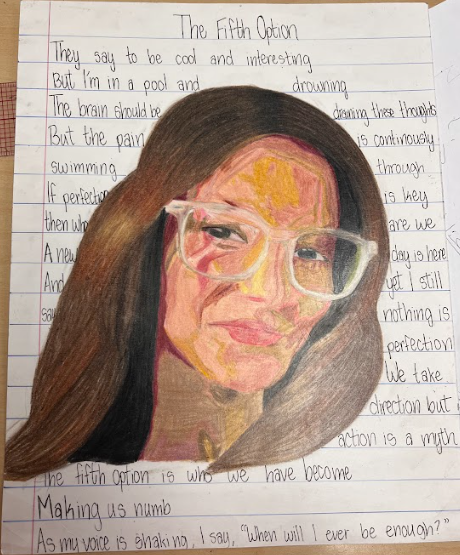 The Fifth Option
They say to be cool and interesting
But I'm in a pool and drowning
The brain should be drowning these thoughts
But the pain is continously
swimming through
If perfection is key
then who are we
A new day is here
And yet I still
say nothing is
perfection
We take
direction but
action is a myth
The fifth option is who we have become
Making us numb
As my voice is shaking, I say, "When will I ever be enough?"